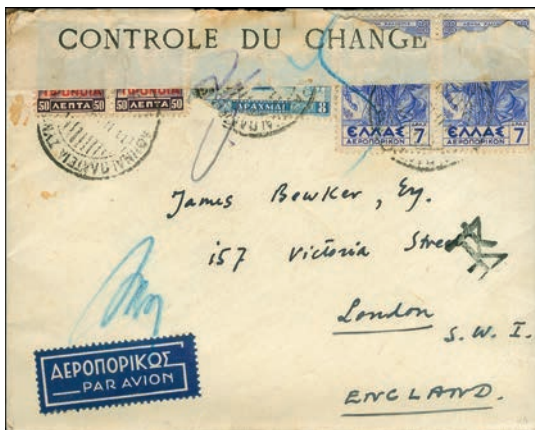 CONTROLE DU CHANGE
ΠΡΟΝΟΙΑ ΠΡΟΝΟΙΑ
50 ΛΕΠΤΑ 50 50 ΛΕΠΤΑ 50
ΔΡΑΧΜΑΙ 8
ΕΛΛΑΣ 7 ΕΛΛΑΣ 7
ΑΕΡΟΠΟΡΙΚΟΝ ΑΕΡΟΠΟΡΙΚΟΝ
James Bowker, Esq.
157 Victoria Street
London
S. W. 1.
ENGLAND.
ΑΕΡΟΠΟΡΙΚΩΣ
PAR AVION